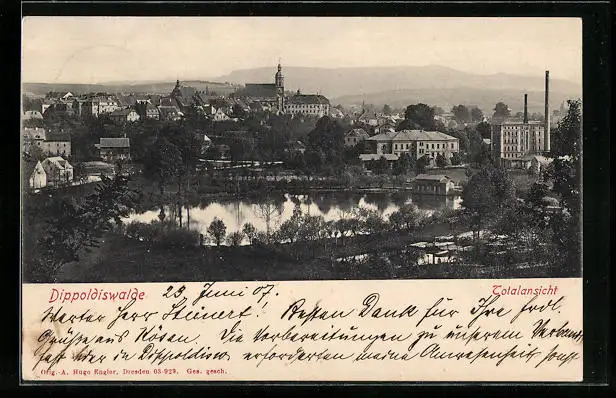 Dippoldiswalde 23 Juni 07. Totalansicht
Werter Herr Steinert! Besten Dank für Ihre frdl.
Grüße aus Kösen. Die Vorbereitungen zu unserem Verbands-
fest hier in Dippoldisw. erforderten meine Anwesenheit
Orig.-A. Hugo Engler, Dresden 03-929. Ges. gesch.